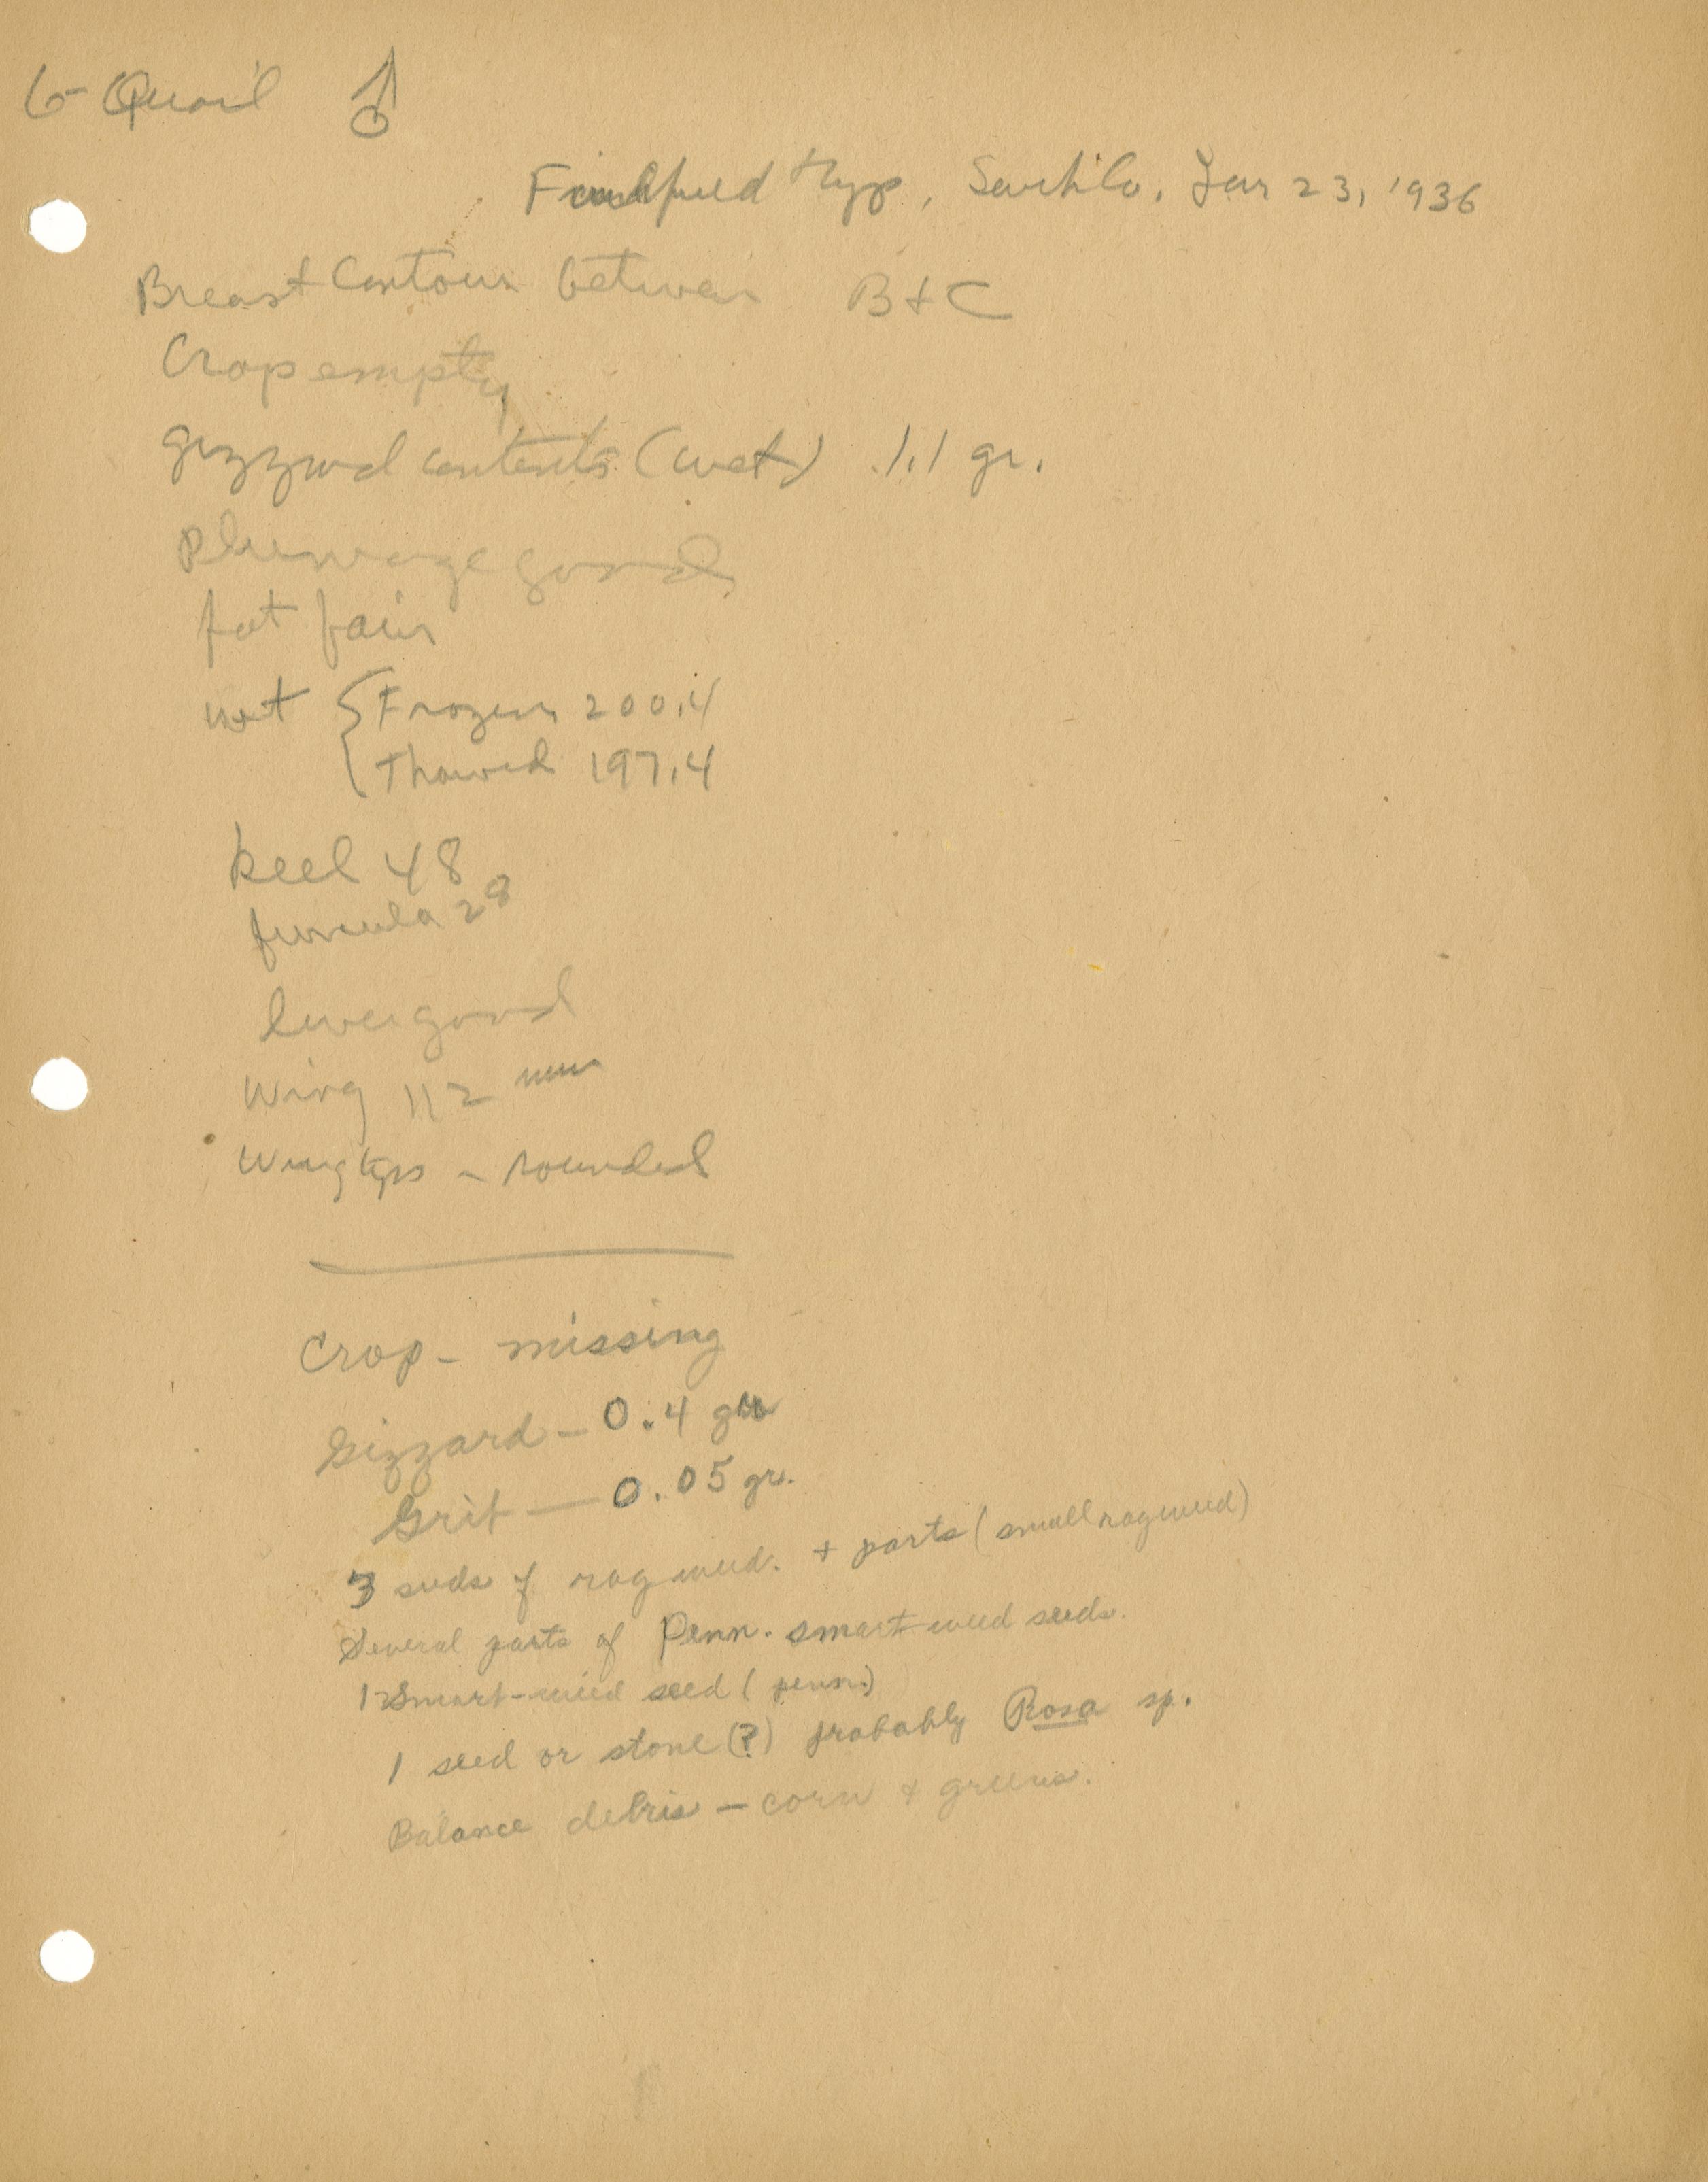 6- Quail ♂
Twp, Sauk Co. Jan 23, 1936
Breast Contour between B + C
Crop empty
gizzard contents (wet) 1.1 gr.
Plumage good
fat fair
wt { Frozen 200.4
Thawed 197.4
keel 48
furcula 28
liver good
Wing 112 mm
Wing tips - rounded
Crop - missing
Gizzard - 0.4 gr
Grit — 0.05 gr.
3 seeds of ragweed. + parts (small ragweed)
Several parts of Penn. smart-weed seeds.
1 Smart-weed seed (penn.)
1 seed or stone (?) probably Rosa sp.
Balance debris - corn & greens.